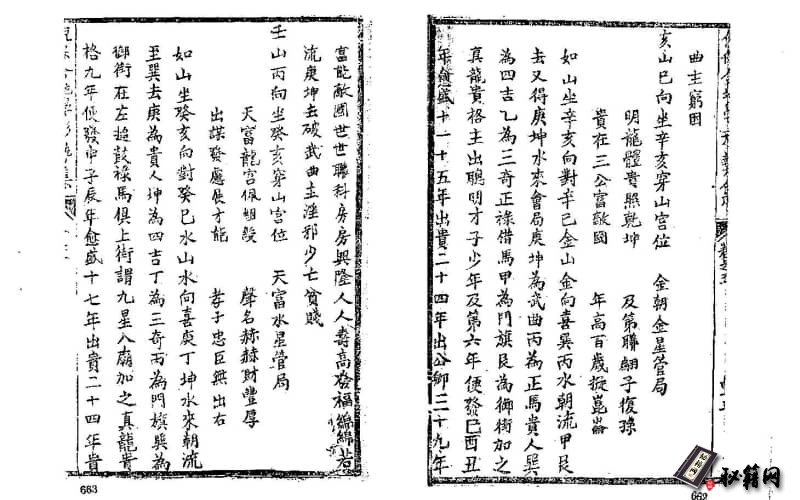 曲主窮困
亥山巳向坐辛亥穿山宮位 金朝金星管局
明龍體貴照乾坤 及第聯翩子復孫
貴在三公富敵國 年高百歲擬崑崙
如山坐辛亥向對辛巳金山金向喜巽丙水朝流甲艮
去又得庚坤水來會局庚坤為武曲丙為正馬貴人巽
為四吉乙為三奇正祿借馬甲為門旗艮為御街加之
真龍貴格主出聰明才子少年及第六年便發巳酉丑
年愈盛十一十五年出貴二十四年出公卿三十九年
662
富能敵國世世聯科房房興隆人人壽高發福綿綿若
流庚坤去破武曲主淫邪少亡貧賤
壬山丙向坐癸亥穿山宮位 天富水星管局
天富龍宮佩組綬 聲名赫赫財豐厚
出謀發慮展才能 孝子忠臣無出右
如山坐癸亥向對癸巳水山水向喜庚丁坤水來朝流
至巽去庚為貴人坤為四吉丁為三奇丙為門旗巽為
御街在左趨鼓祿馬俱上街謂九星八廟加之真龍貴
格九年便發申子辰年愈盛十七年出貴二十四年貴
663
秘籍网